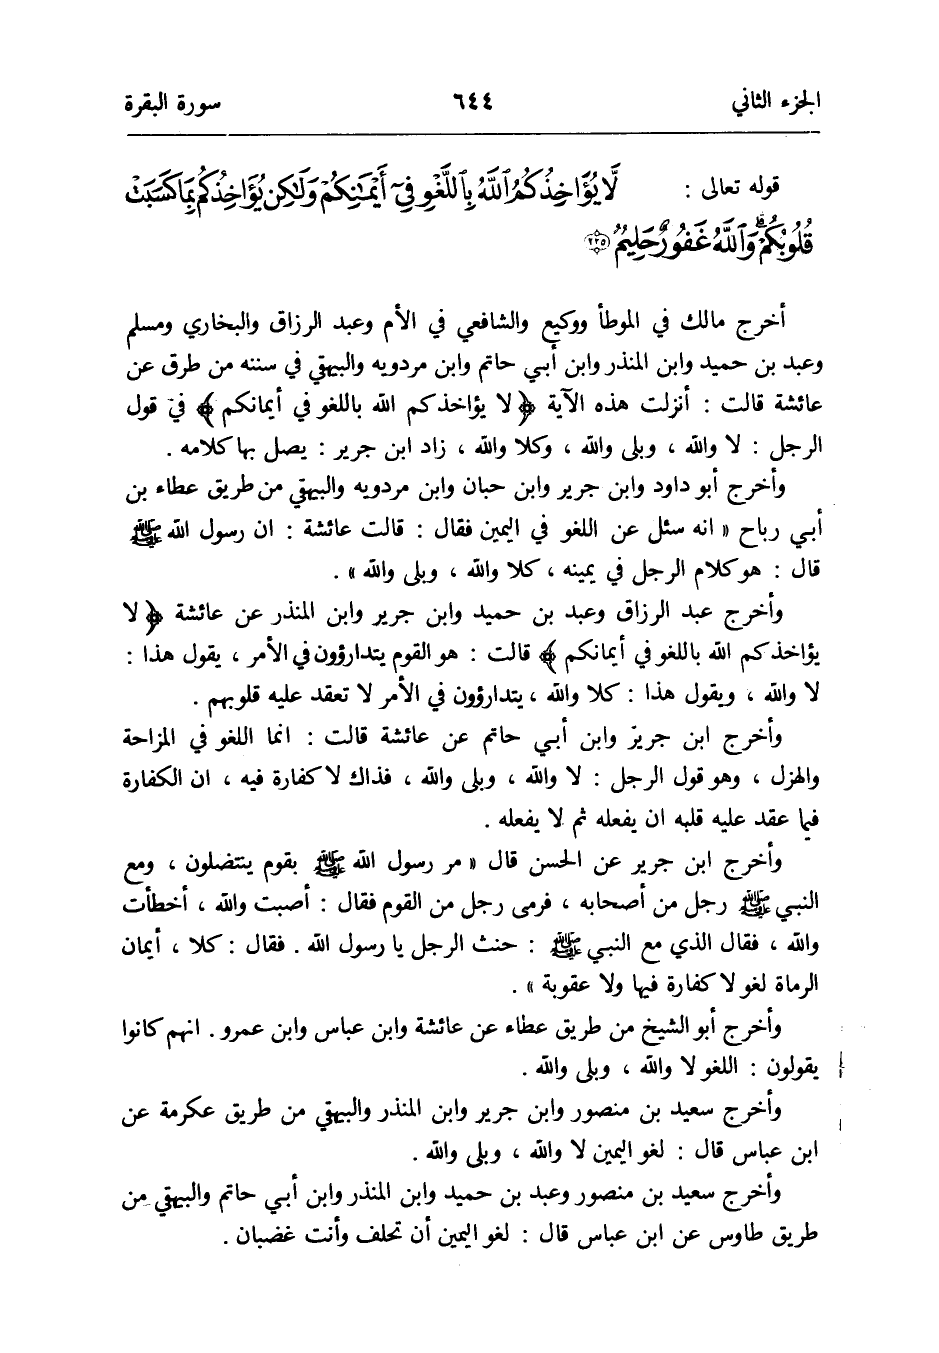 الجزء الثاني ٦٤٤ سورة البقرة
قوله تعالى : لَّا يُؤَاخِذُكُمُ ٱللَّهُ بِٱللَّغْوِ فِىٓ أَيْمَـٰنِكُمْ وَلَـٰكِن يُؤَاخِذُكُم بِمَا كَسَبَتْ
قُلُوبُكُمْ ۗ وَٱللَّهُ غَفُورٌ حَلِيمٌ ۝٢٢٥
أخرج مالك في الموطأ ووكيع والشافعي في الأم وعبد الرزاق والبخاري ومسلم
وعبد بن حميد وابن المنذر وابن أبي حاتم وابن مردويه والبيهقي في سننه من طرق عن
عائشة قالت : أنزلت هذه الآية ﴿ لا يؤاخذكم الله باللغو في أيمانكم ﴾ في قول
الرجل : لا والله ، وبلى والله ، وكلا والله ، زاد ابن جرير : يصل بها كلامه .
وأخرج أبو داود وابن جرير وابن حبان وابن مردويه والبيهقي من طريق عطاء بن
أبي رباح « انه سئل عن اللغو في اليمين فقال : قالت عائشة : ان رسول الله ﷺ
قال : هو كلام الرجل في يمينه ، كلا والله ، وبلى والله » .
وأخرج عبد الرزاق وعبد بن حميد وابن جرير وابن المنذر عن عائشة ﴿ لا
يؤاخذكم الله باللغو في أيمانكم ﴾ قالت : هو القوم يتدارؤون في الأمر ، يقول هذا :
لا والله ، ويقول هذا : كلا والله ، يتدارؤون في الأمر لا تعقد عليه قلوبهم .
وأخرج ابن جرير وابن أبي حاتم عن عائشة قالت : انما اللغو في المزاحة
والهزل ، وهو قول الرجل : لا والله ، وبلى والله ، فذاك لا كفارة فيه ، ان الكفارة
فيما عقد عليه قلبه ان يفعله ثم لا يفعله .
وأخرج ابن جرير عن الحسن قال « مر رسول الله ﷺ بقوم ينتضلون ، ومع
النبي ﷺ رجل من أصحابه ، فرمى رجل من القوم فقال : أصبت والله ، أخطأت
والله ، فقال الذي مع النبي ﷺ : حنث الرجل يا رسول الله . فقال : كلا ، أيمان
الرماة لغو لا كفارة فيها ولا عقوبة » .
وأخرج أبو الشيخ من طريق عطاء عن عائشة وابن عباس وابن عمرو . انهم كانوا
يقولون : اللغو لا والله ، وبلى والله .
وأخرج سعيد بن منصور وابن جرير وابن المنذر والبيهقي من طريق عكرمة عن
ابن عباس قال : لغو اليمين لا والله ، وبلى والله .
وأخرج سعيد بن منصور وعبد بن حميد وابن المنذر وابن أبي حاتم والبيهقي من
طريق طاوس عن ابن عباس قال : لغو اليمين أن تحلف وأنت غضبان .